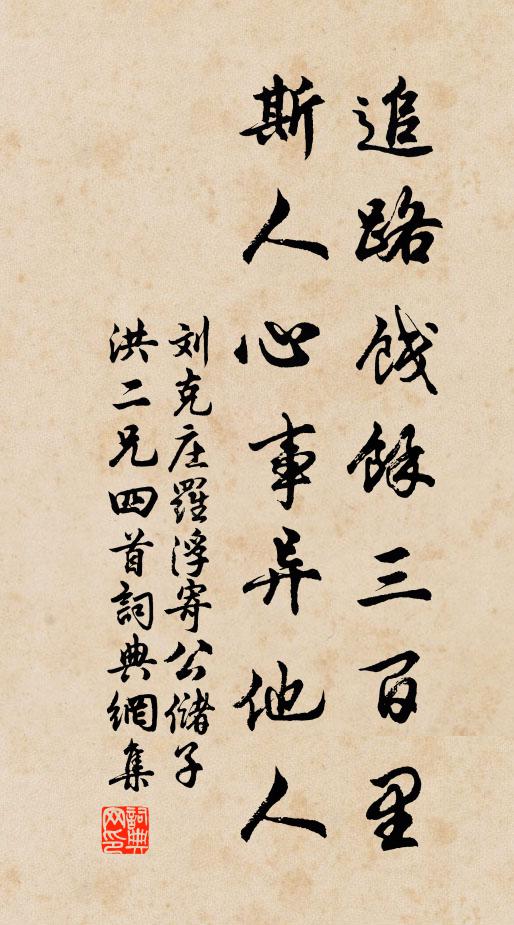 追路餞餘三百里
斯人心事异他人
刘克庄羅浮寄公儲子
洪二兄四首詞典網集
詞典网印